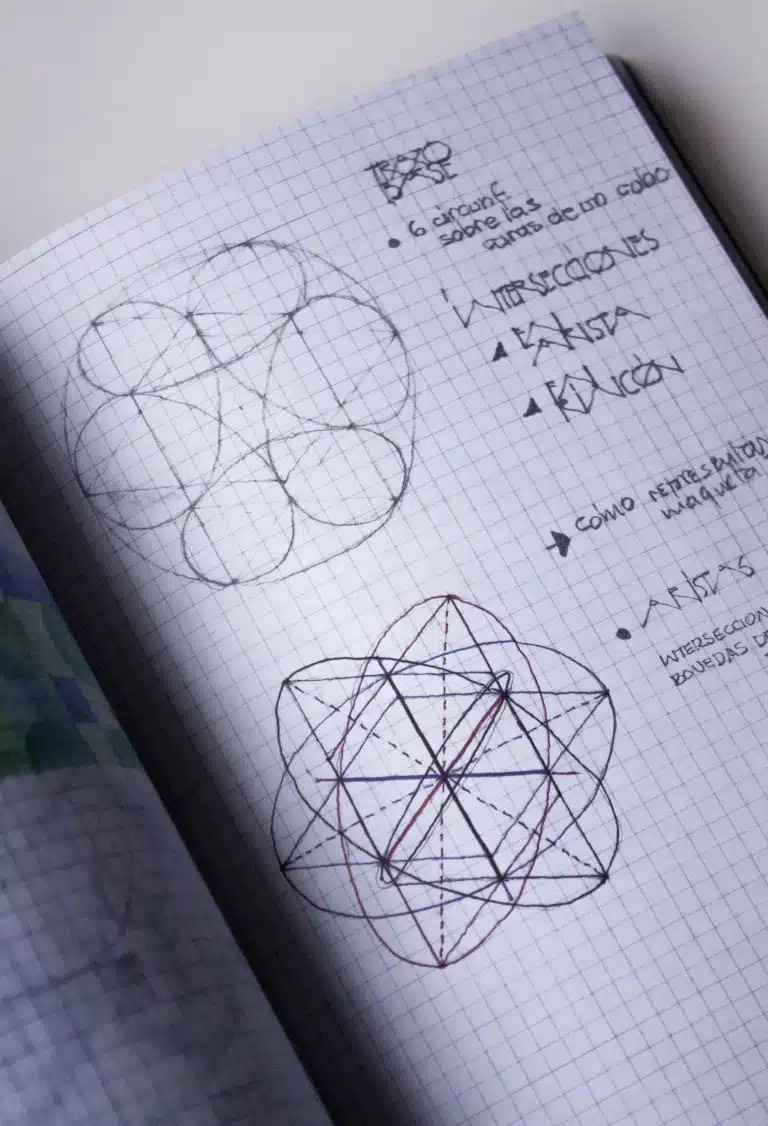 TRAZO
BASE
• 6 circunf.
sobre las
caras de un cubo
INTERSECCIONES
ARISTA
RINCÓN
→ como representar
maqueta
• ARISTAS
INTERSECCION
BOVEDAS DE